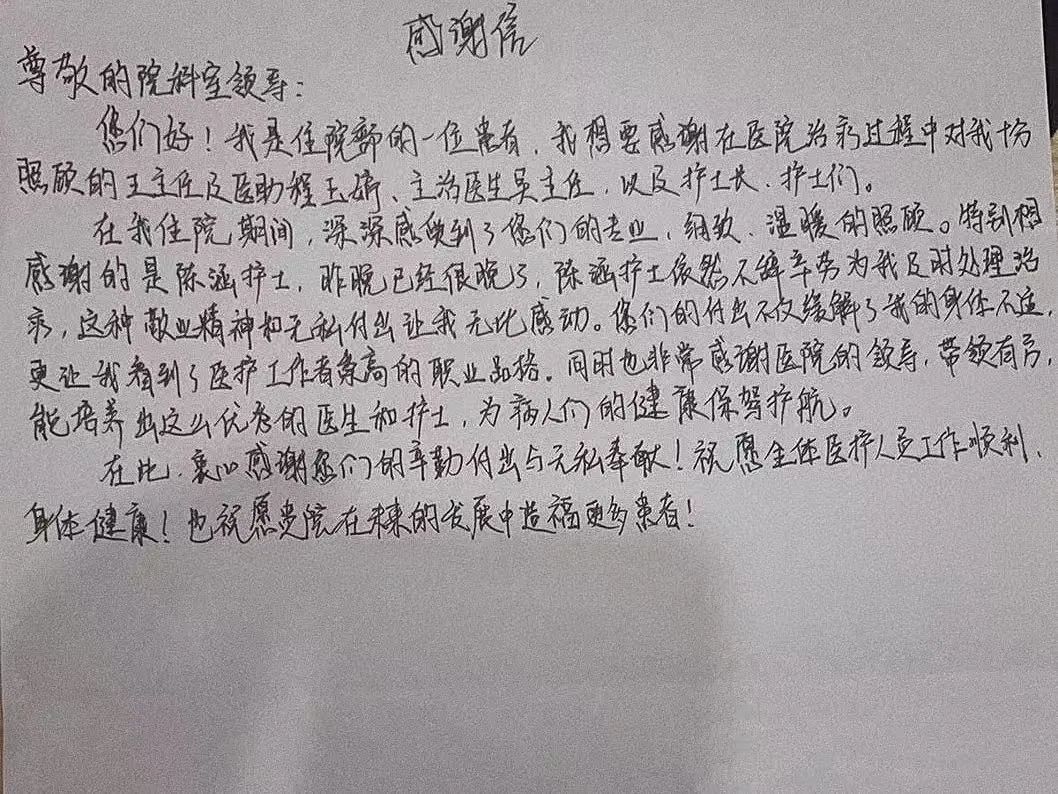 感谢信
尊敬的院科室领导：
您们好！我是住院部的一位患者，我想要感谢在医院治疗过程中对我十份
照顾的王主任及医助程玉娇、主治医生吴主任，以及护士长、护士们。
在我住院期间，深深感受到了您们的专业，细致、温暖的照顾。特别想
感谢的是陈涵护士，昨晚已经很晚了，陈涵护士依然不辞辛劳为我及时处理治
疗，这种敬业精神和无私付出让我无比感动。您们的付出不仅缓解了我的身体不适，
更让我看到了医护工作者崇高的职业品格。同时也非常感谢医院的领导，带领有方，
能培养出这么优秀的医生和护士，为病人们的健康保驾护航。
在此，衷心感谢您们的辛勤付出与无私奉献！祝愿全体医护人员工作顺利、
身体健康！也祝愿贵院在未来的发展中造福更多患者！